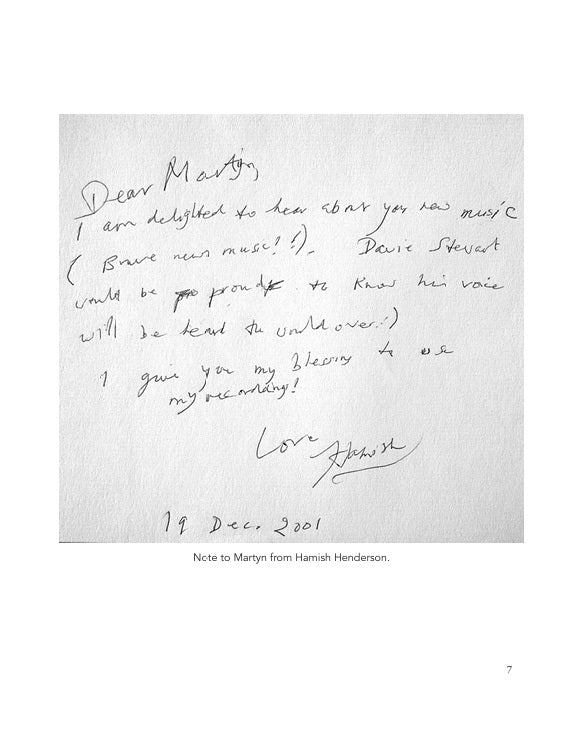 Dear Martyn,
I am delighted to hear about your new music
( Brave new music!!). Davie Stewart
would be proud to know his voice
will be heard the world over :)
I give you my blessing to use
my recordings!
Love Hamish
19 Dec. 2001
Note to Martyn from Hamish Henderson.
7